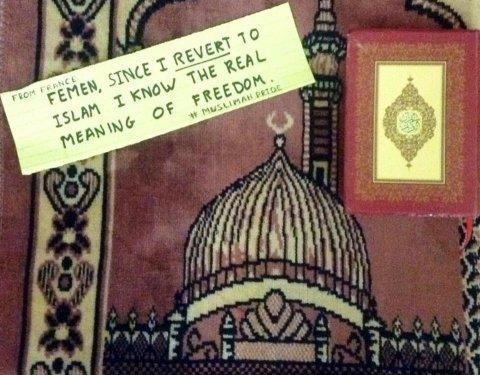 FROM FRANCE
FEMEN, SINCE I REVERT TO
ISLAM I KNOW THE REAL
MEANING OF FREEDOM.
# MUSLIMAH PRIDE